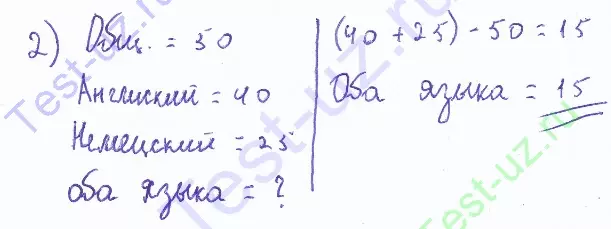 2) Общ. = 50
Английский = 40
Немецский = 25
оба языка = ?
(40 + 25) - 50 = 15
Оба языка = 15
Test-uz.ru
Test-uz.ru
Test-uz.ru